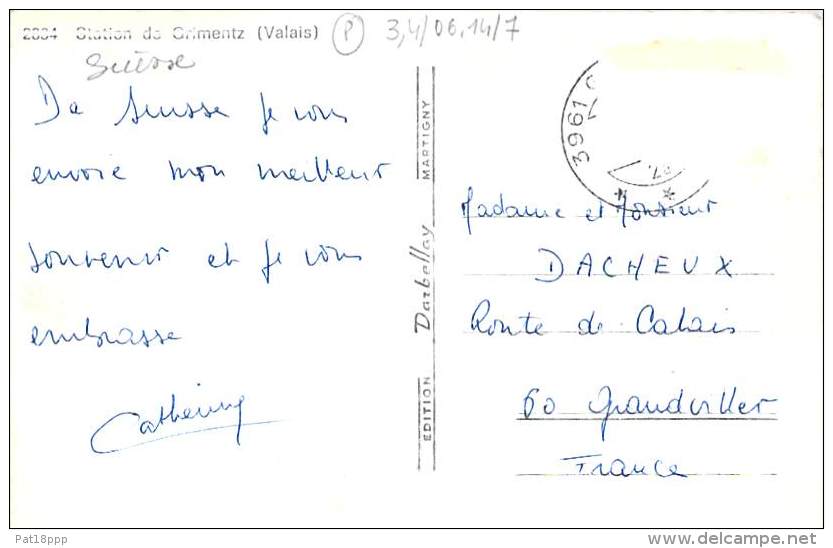 2884 Station de Grimentz (Valais)
P
3,4/06.14/7
Suisse
De Suisse je vous
envoie mon meilleur
souvenir et je vous
embrasse
Catherine
EDITION Darbellay MARTIGNY
3961
Madame et Monsieur
DACHEUX
Route de Calais
60 Grandviller
France
Pat18ppp
delcampe.net